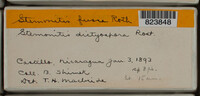 Stemonitis fusca Roth
823848
Stemonitis dictyospora Rost
Nicaragua Jan 3, 1893
Coll. B. Shimek
Det. T. H. Macbride